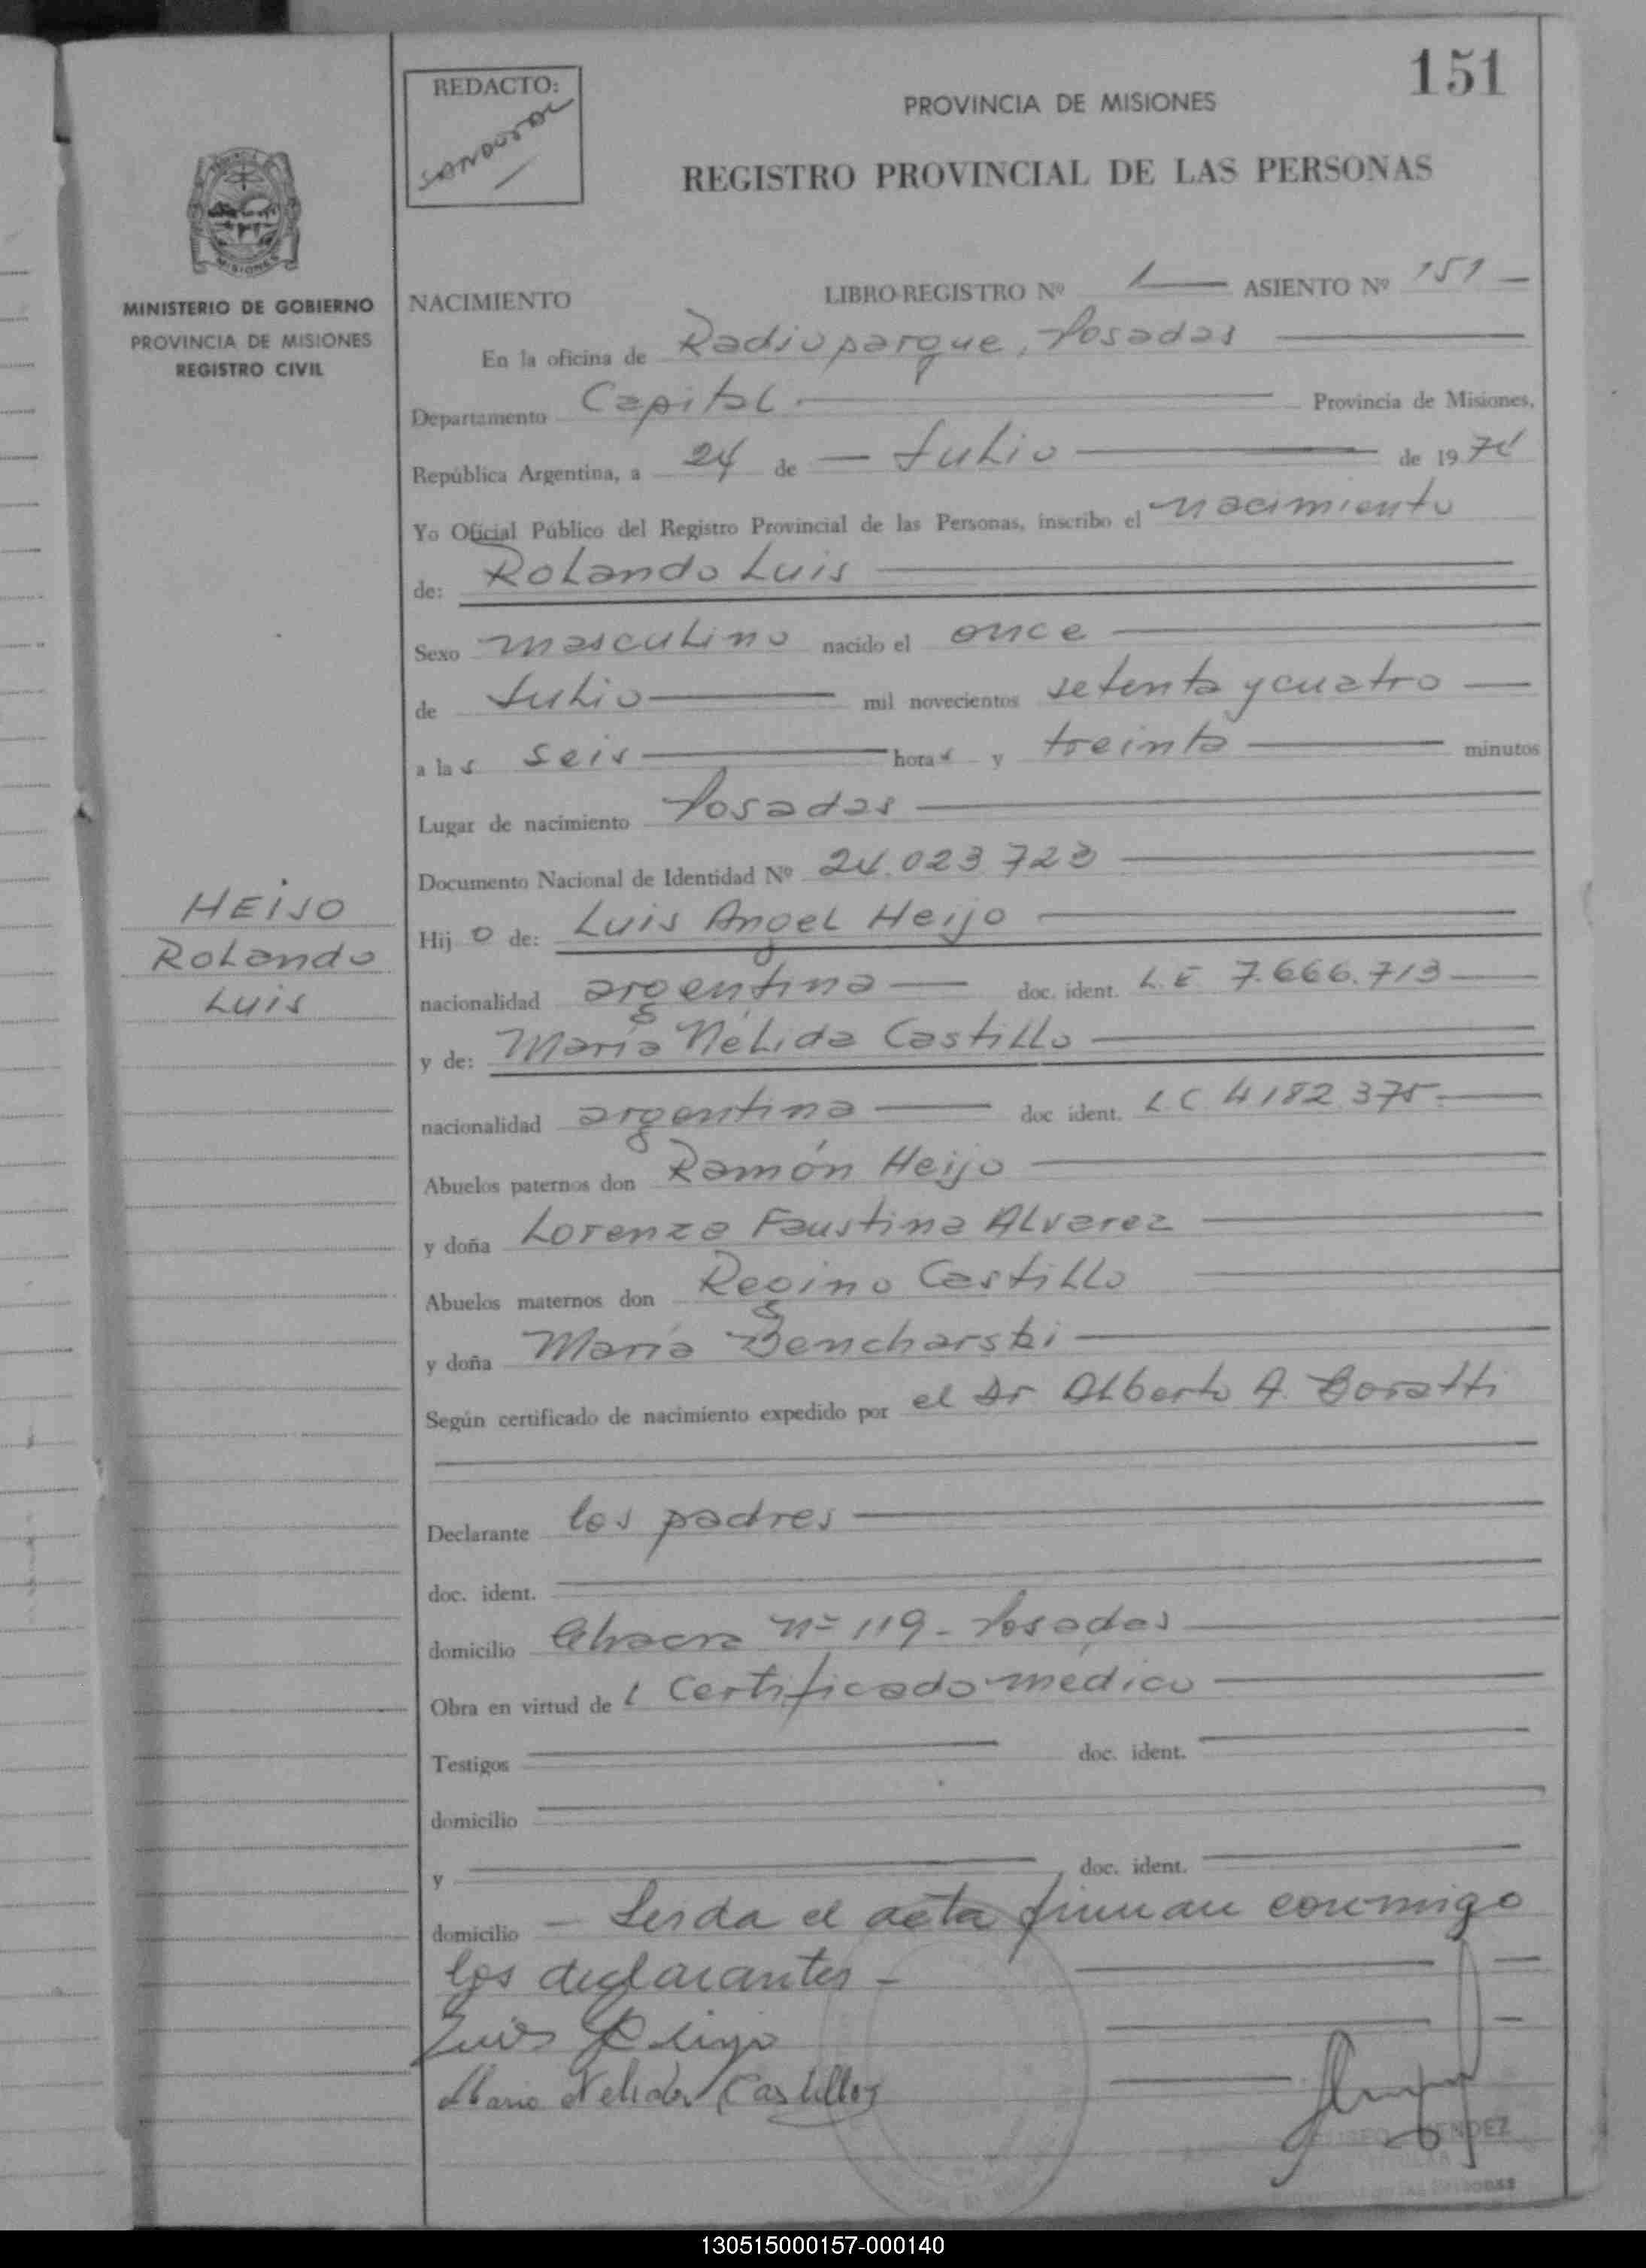 151
REDACTO:
SANDOVAL
PROVINCIA DE MISIONES
REGISTRO PROVINCIAL DE LAS PERSONAS
MISIONES
MINISTERIO DE GOBIERNO
PROVINCIA DE MISIONES
REGISTRO CIVIL
NACIMIENTO LIBRO-REGISTRO Nº 1 ASIENTO Nº 151
En la oficina de Radioparque, Posadas
Departamento Capital Provincia de Misiones,
República Argentina, a 24 de Julio de 1974
Yo Oficial Público del Registro Provincial de las Personas, inscribo el nacimiento
de: Rolando Luis
Sexo masculino nacido el once
de Julio mil novecientos setenta y cuatro
a las seis horas y treinta minutos
Lugar de nacimiento Posadas
Documento Nacional de Identidad Nº 24.023.723
HEIJO
Rolando
Luis
Hijo de: Luis Angel Heijo
nacionalidad argentina doc. ident. L.E 7.666.713
y de: María Nélida Castillo
nacionalidad argentina doc ident. L C 4182.375
Abuelos paternos don Ramón Heijo
y doña Lorenza Faustina Alvarez
Abuelos maternos don Regino Castillo
y doña María Bencharski
Según certificado de nacimiento expedido por el Dr Alberto A. Boratti
Declarante los padres
doc. ident.
domicilio Chacra nº 119 - Posadas
Obra en virtud del Certificado médico
Testigos doc. ident.
domicilio
y doc. ident.
domicilio - Leida el acta firman conmigo
los declarantes -
Luis Heijo
Maria Nelida Castillo
MENDEZ
TITULAR
130515000157-000140